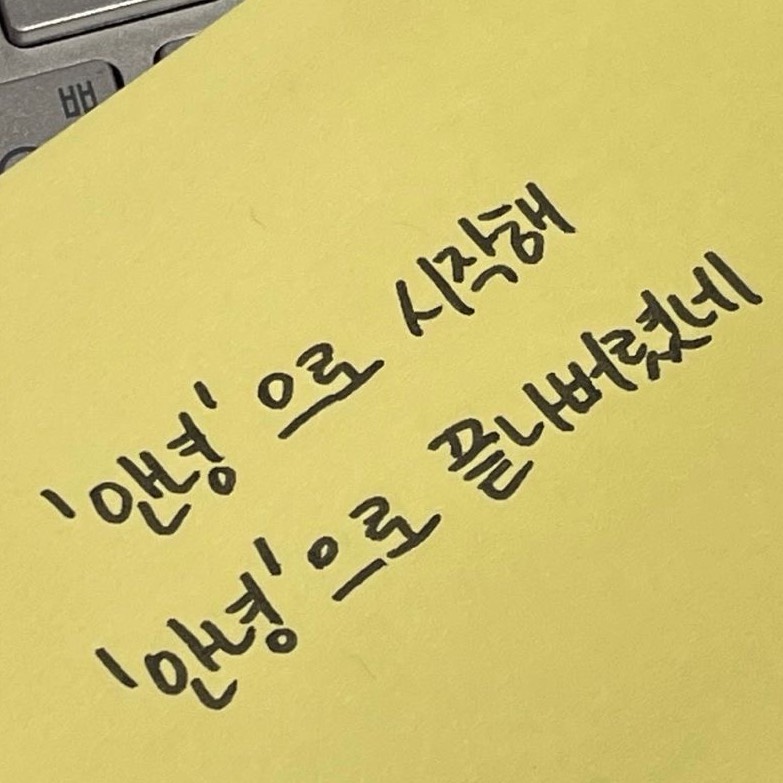 ㅃ
ㅂ
'안녕'으로 시작해
'안녕'으로 끝나버렸네